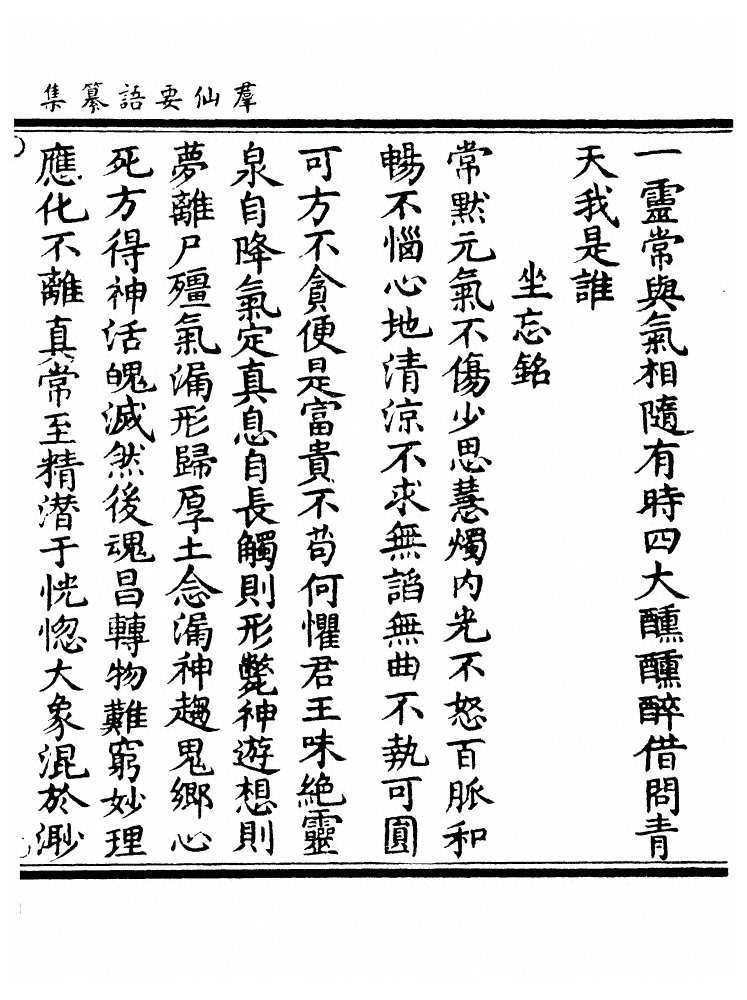 羣仙要語纂集
一靈常與氣相隨有時四大醺醺醉借問青
天我是誰
坐忘銘
常默元氣不傷少思慧燭内光不怒百脈和
暢不惱心地清涼不求無諂無曲不執可圓
可方不貪便是富貴不苟何懼君王味絶靈
泉自降氣定真息自長觸則形斃神遊想則
夢離尸殭氣漏形歸厚土念漏神趨鬼鄉心
死方得神活魄滅然後魂昌轉物難窮妙理
應化不離真常至精潜于恍惚大象混於渺